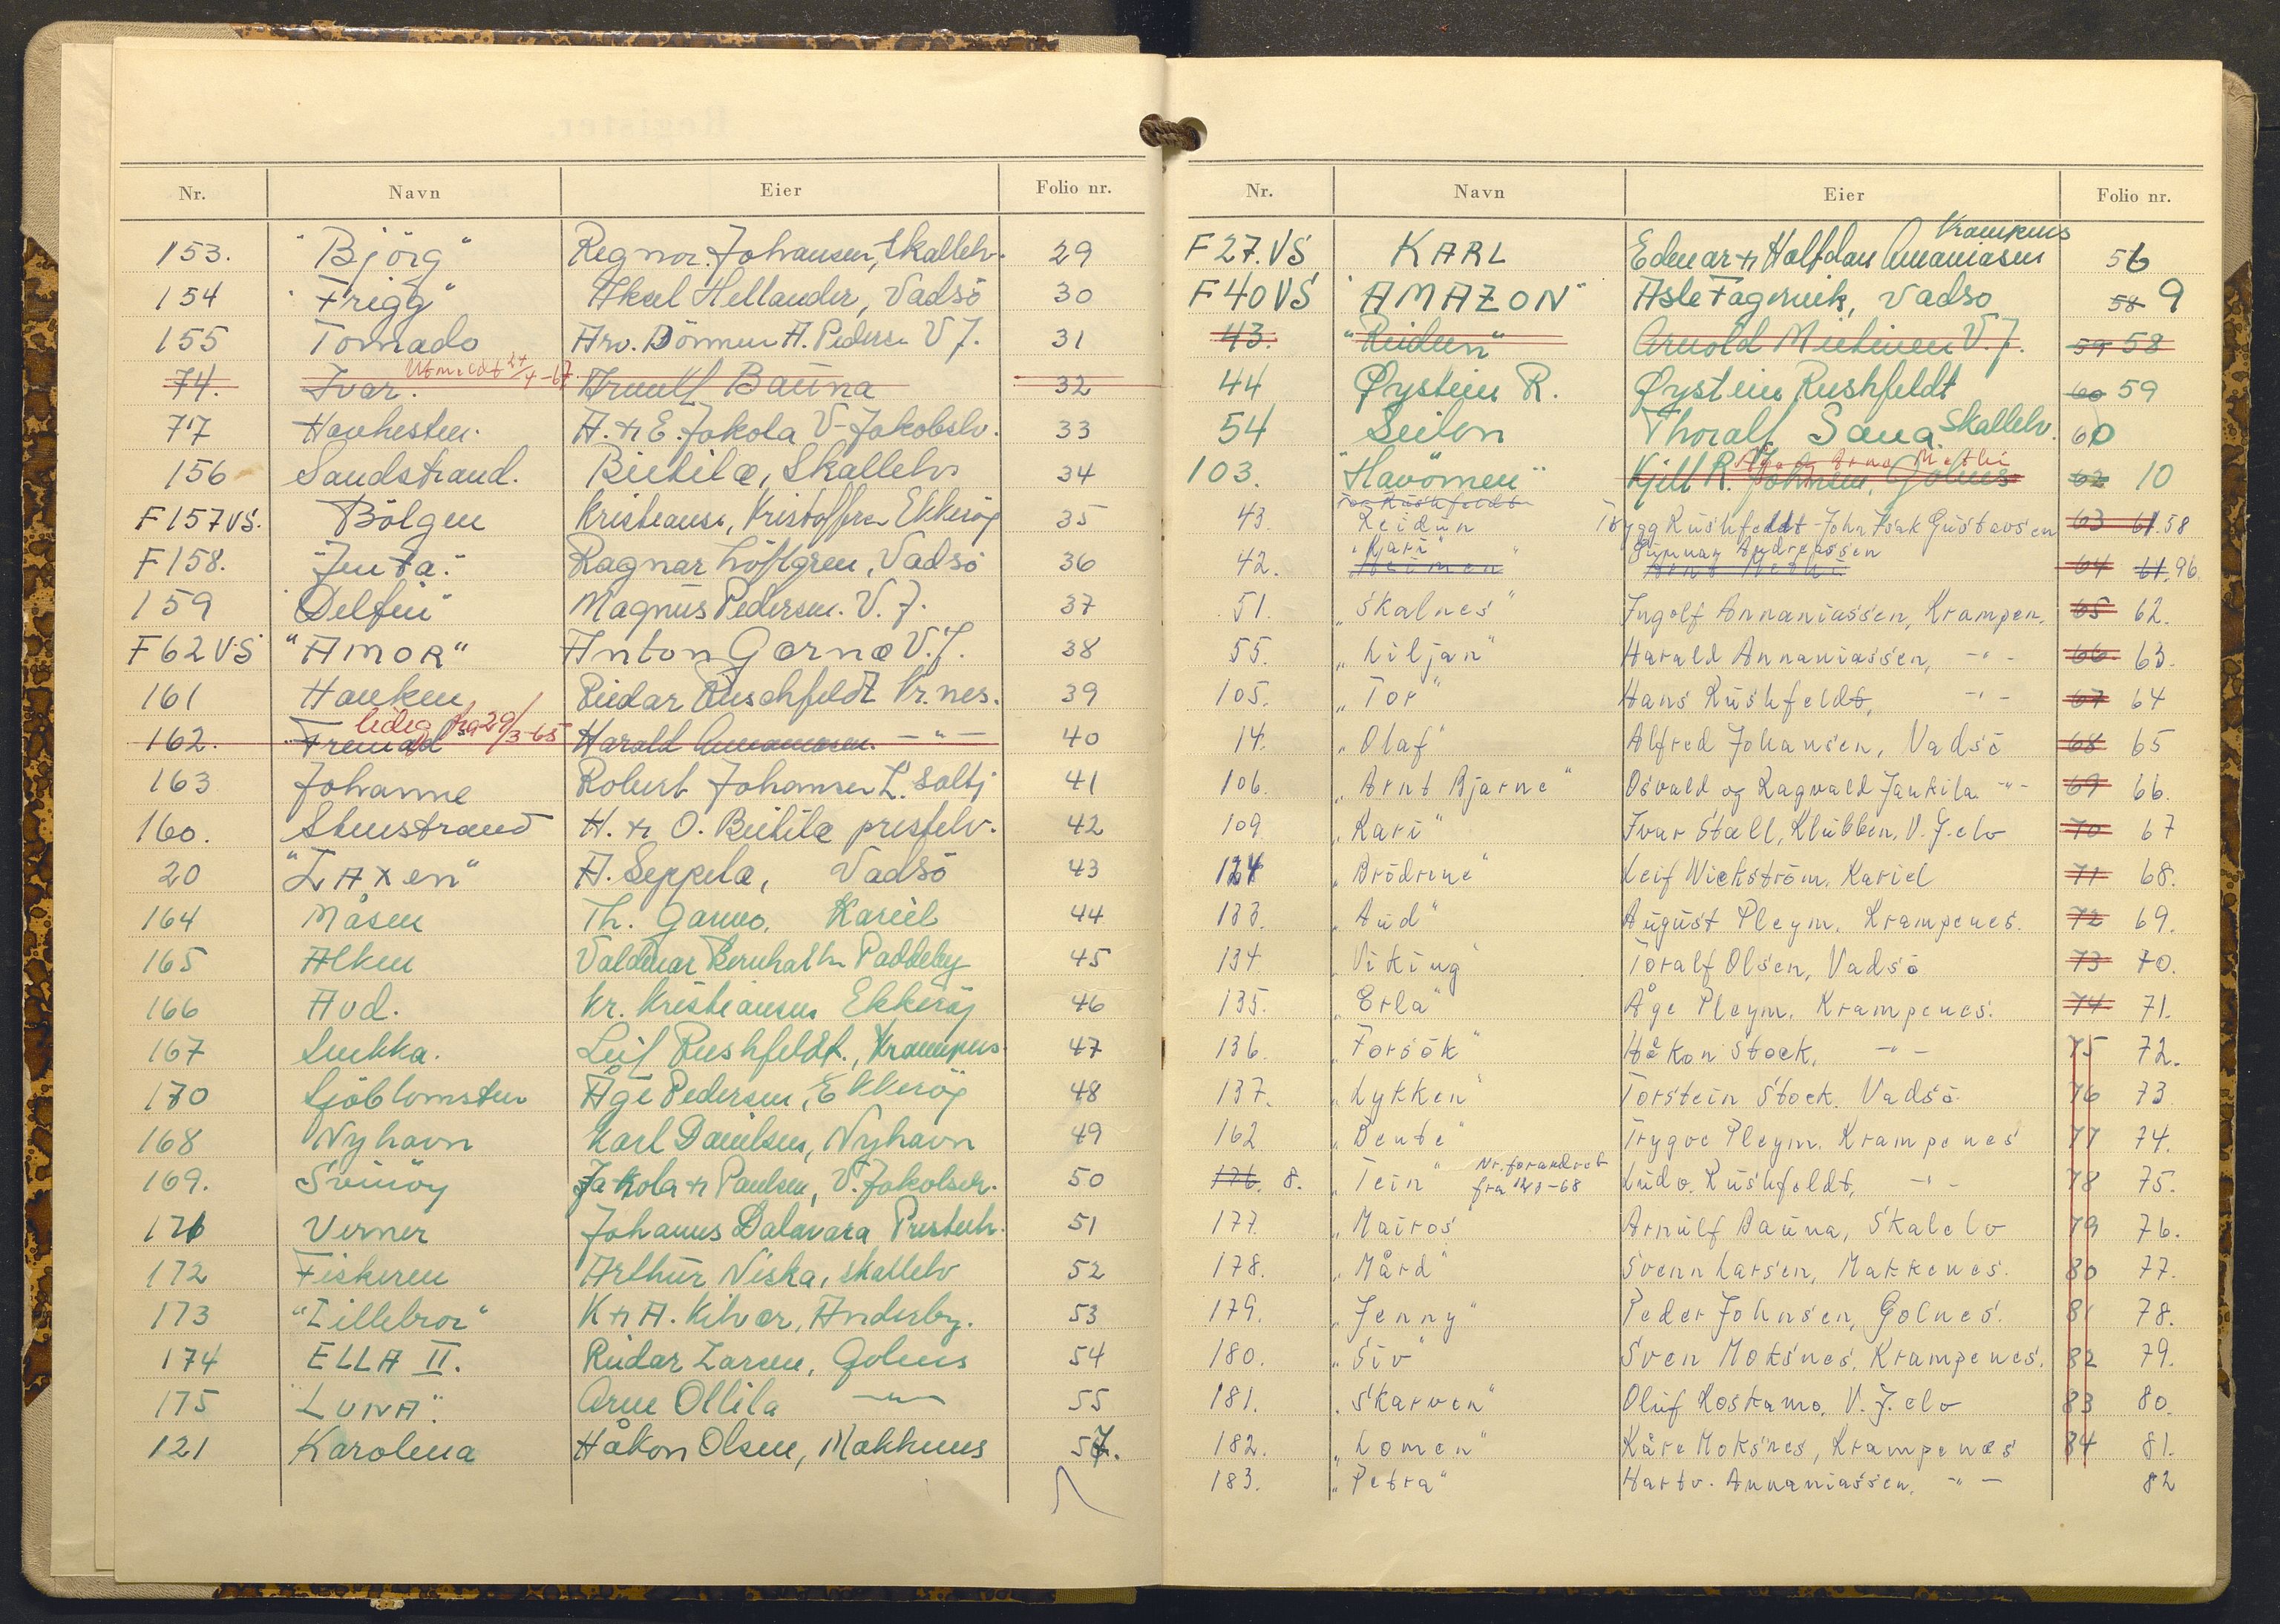 Nr. Navn Eier Folio nr.
153. "Björg" Regnor. Johansen, Skallelv. 29
154 "Frigg" Aksel Hellander, Vadsö 30
155 Tornado Arv. Dönnum A. Pedersen V J. 31
74. Ivar. Utmeldt 24/4-67 Arnulf Bauna 32
77 Havhesten. A. & E. Jakola V-Jakobslv. 33
156 Sandstrand. Bietilæ, Skallelv 34
F 157 VS. Bölgen Kristiansen, Kristoffersen Ekkeröy 35
F 158. "Jenta". Ragnar Löfgren, Vadsö 36
159 "Delfin" Magnus Pedersen. V. J. 37
F 62 VS "AMOR" Anton Garnæ V. J. 38
161 Hauken Reidar Ruschfeldt Kr.nes. 39
162. Fremad ledig fra 29/3-65 Harald Annaniassen - " - 40
163 Johanne Robert Johansen L. Saltj 41
160. Stenstrand H. & O. Bietilæ prestelv. 42
20 "LAXen" A. Seppelæ, Vadsö 43
164 Måsen Th. Garvo, Kariel 44
165 Alken Valdemar Bernhardtsen Paddeby 45
166 Aud. Kr. Kristiansen Ekkeröy 46
167 Snekka. Leif Rushfeldt, Krampenes. 47
170 Sjöblomsten Åge Pedersen, Ekkeröy 48
168 Nyhavn Karl Danielsen, Nyhavn 49
169. Svinöy Jakola & Paulsen, V. Jakobselv. 50
171 Verner Johannes Dalavara Prestelv. 51
172 Fiskeren Arthur Niska, Skallelv 52
173 "Lillebror" K & A. Kilvær, Andersby. 53
174 ELLA II. Reidar Larsen, Golnes 54
175 "LUNA". Arne Ollila - " - 55
121 Karolina Håkon Olsen, Makkenes 57.
Nr. Navn Eier Folio nr.
F 27. VS KARL Edmar & Halfdan Ananiasen Krampenes 56
F 40 VS "AMAZON" Asle Fagervik, Vadsö 58 9
43. "Reidun" Arnold Mietinen V. J. 59 58
44 Øystein R. Øystein Rushfeldt 60 59
54 Seilen Thoralf Saua. Skallelv. 60
103. "Havörnen" Kjell R. Johnsen, Golnes 62 10
43. Reidun Trygg Rushfeldt - John Isak Gustavsen 63 61. 58
42. "Kari" Gunnar Andreassen 64 61. 96.
51. "Skalnes" Ingolf Annaniassen, Krampen. 65 62.
55. "Liljan" Harald Annaniassen, - " - 66 63.
105. "Tor" Hans Rushfeldt, - " - 67 64
14. "Olaf" Alfred Johansen, Vadsö 68 65
106. "Arnt Bjarne" Osvald og Ragvald Jankila - " - 69 66.
109 "Kari" Ivar Stæll, Klubben. V. J. elv 70 67
124 "Brödrene" Leif Wickström. Kariel 71 68.
133. "Aud" August Pleym. Krampenes. 72 69.
134. "Viking" Toralf Olsen, Vadsö 73 70.
135. "Erla" Åge Pleym. Krampenes. 74 71.
136. "Forsök" Håkon Stock, - " - 75 72.
137. "Lykken" Torstein Stock. Vadsö. 76 73
162 "Bente" Trygve Pleym. Krampenes 77 74.
176. 8. "Tein" Nr. forandret fra 12/3-68 Ludv. Rushfeldt, - " - 78 75.
177. "Mairos" Arnulf Bauna, Skalelv 79 76.
178. "Mård" Svenn Larsen, Makkenes. 80 77.
179. "Jenny" Peder Johnsen, Golnes. 81 78.
180. "Siv" Sven Moksnes, Krampenes. 82 79.
181. "Skarven" Oluf Kostamo, V. J. elv 83 80.
182. "Lomen" Kåre Moksnes, Krampenes 84 81.
183. "Petra" Hartv. Annaniassen, - " - 82